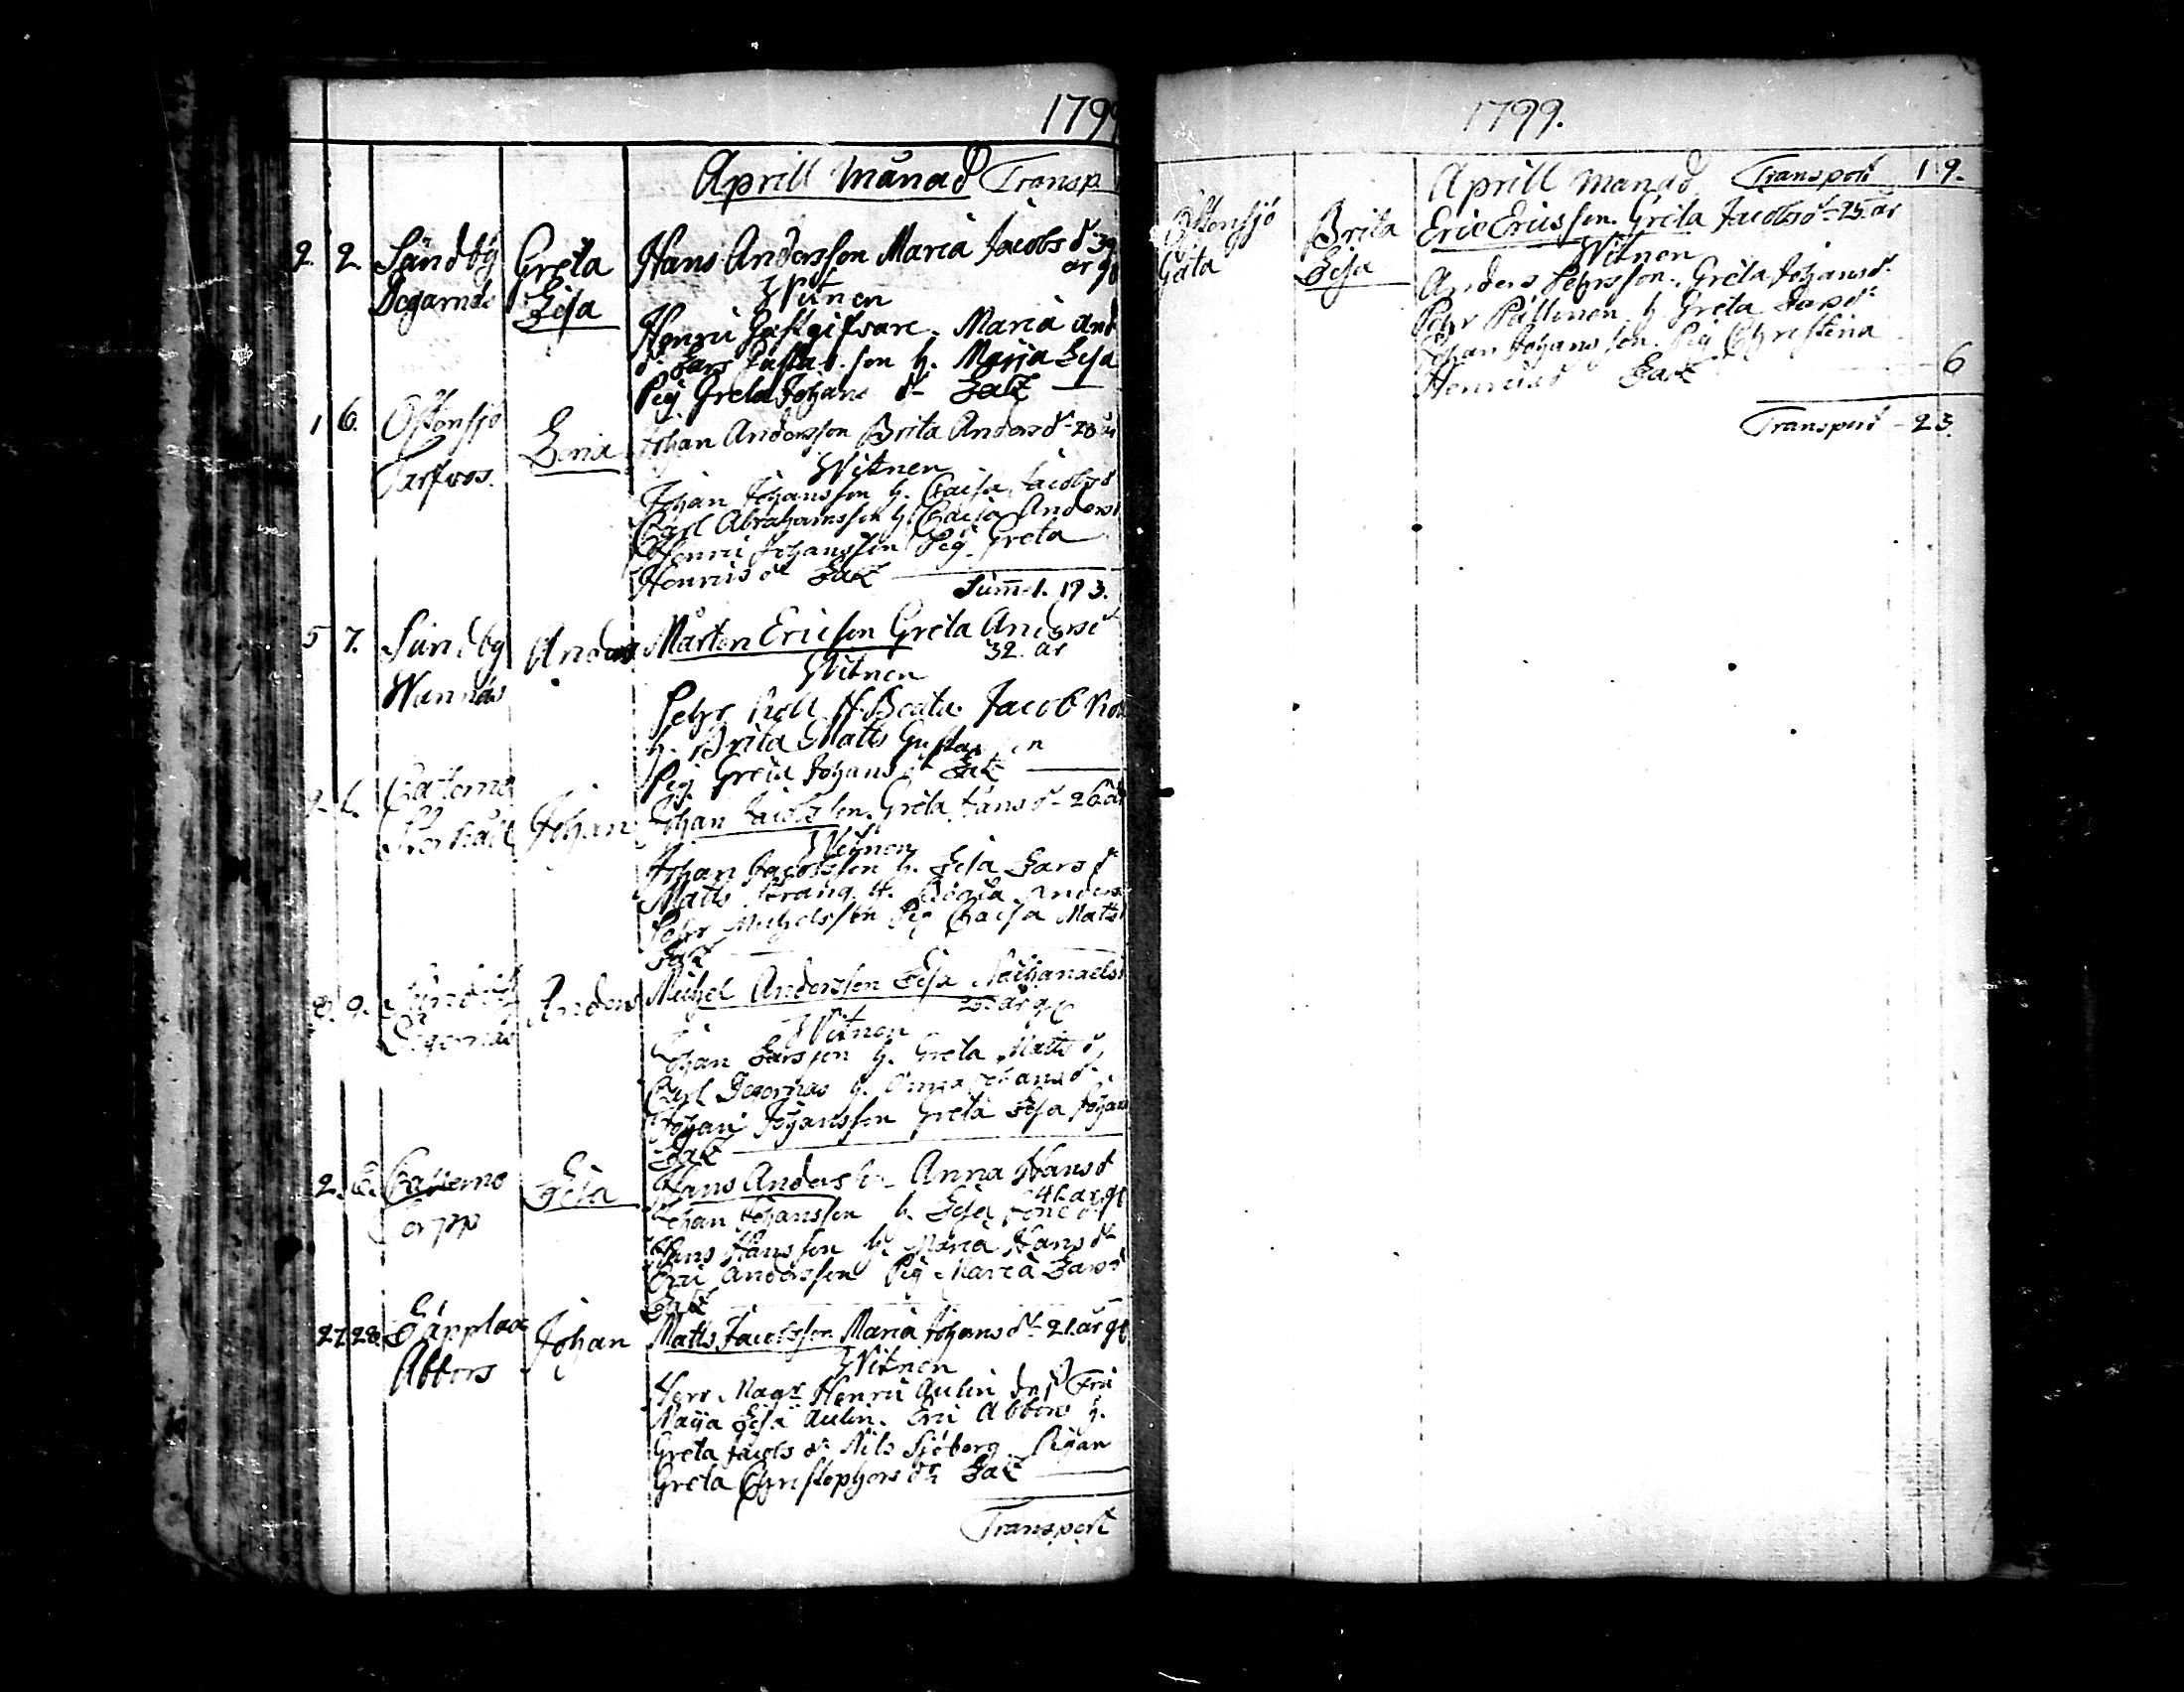 1799
Aprill Månad Transp
2. 2. Sundby Greta Hans Andersson Maria Jacobs dr 39
Degernäs Lisa år gl
Witnen
Henric Gästgifvare. Maria And
dr Lars Gustafsson h. Maija Lisa
Pig Greta Johans dr Latz
1 6. Östensjö Lena Johan Andersson Brita Anders dr 28 år
Tarfvos. Witnen
Johan Johansson h. Caisa Jacobsd
Carl Abrahamsson h. Caisa Anders
Henric Johansson Pig. Greta
Henrics dr Latz
Sum̄ 1. 193.
5 7. Sundby Anders Mårten Ericson Greta Andersd
32 år
Wannäs Witnen
Pehr Roll H. Beata. Jacob Ro
h. Brita Matts Gustafsson
Pig. Greta Johans dr Latz
2. 6. Caterno Johan Johan Jacobsson. Greta Hans dr 26 år
Witnen
Johan Jacobsson h. Lisa Lars dr
Matts Strang. H. Beata Anders
Pehr Michelsson Pig Caisa Matts
Latz
8. 9. Sundby Anders Michel Andersson Lisa Nathanaels
Degernäs 25 år gl
Witnen
Johan Larsson h. Greta Matts dr
Carl Degernäs h. Anna Johans dr
Johan Johansson Greta Lisa Johans
Latz
2. 6. Catterno Lisa Hans Anders Anna Hans dr
Torpp 41. år gl
Johan Johansson h. Lisa
Hans Hansson h. Maria Hans dr
Eric Andersson Pig Maria Larsd
Latz
27. 28. Lappträx Johan Matts Jacobsson Maria Johans dr 21. år gl
Abbors Witnen
Herr Magr Henric Aulin dess Fru
Maija Lisa Aulin. Eric Abbors h.
Greta Jacobs dr Nils Sjöberg Pigan
Greta Christophers dr Latz
Transport
1799.
Aprill Månad Transport 19.
Östensjö Brita Eric Ericsson. Greta Jacobs dr 25. år
Gäta Lisa Witnen
Anders Pehrsson. Greta Johansd.
Pehr Pällonen h Greta Larsdr
Johan Johansson. Pig Christina
Henricsd Latz 6
Transport 23.